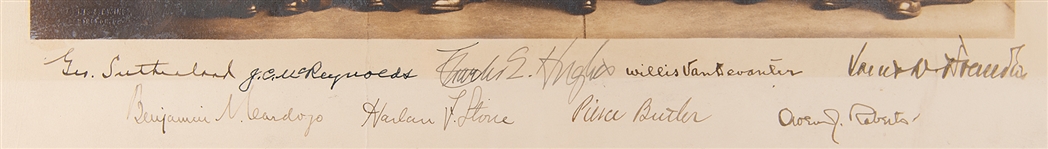 Geo. Sutherland J.C. McReynolds Charles E. Hughes Willis Van Devanter Louis D. Brandeis
Benjamin N. Cardozo Harlan F. Stone Pierce Butler Owen J. Roberts